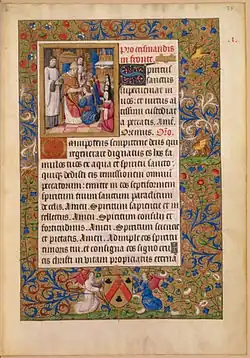 Pro confirmandis
in fronte.
Spiritus
sanctus
superueniat in
uos: et uirtus al
tissimi custodiat
a peccatis. Amē.
Oremus. Oro.
Omnipotens sempiterne deus qui
regenerare dignatus es hos fa
mulos tuos ex aqua et spiritu sancto
quique dedisti eis remissionem omniū
peccatorum: emitte in eos septiformem
spiritum tuum sanctum paraclitum
de celis. Amen. Spiritum sapientie et in
tellectus. Amen. Spiritum consilij et
fortitudinis. Amen. Spiritum scientie
et pietatis. Amen. Adimple eos spiritu
timoris tui. et consigna eos signo cru
cis christi in vitam propiciatus eterna